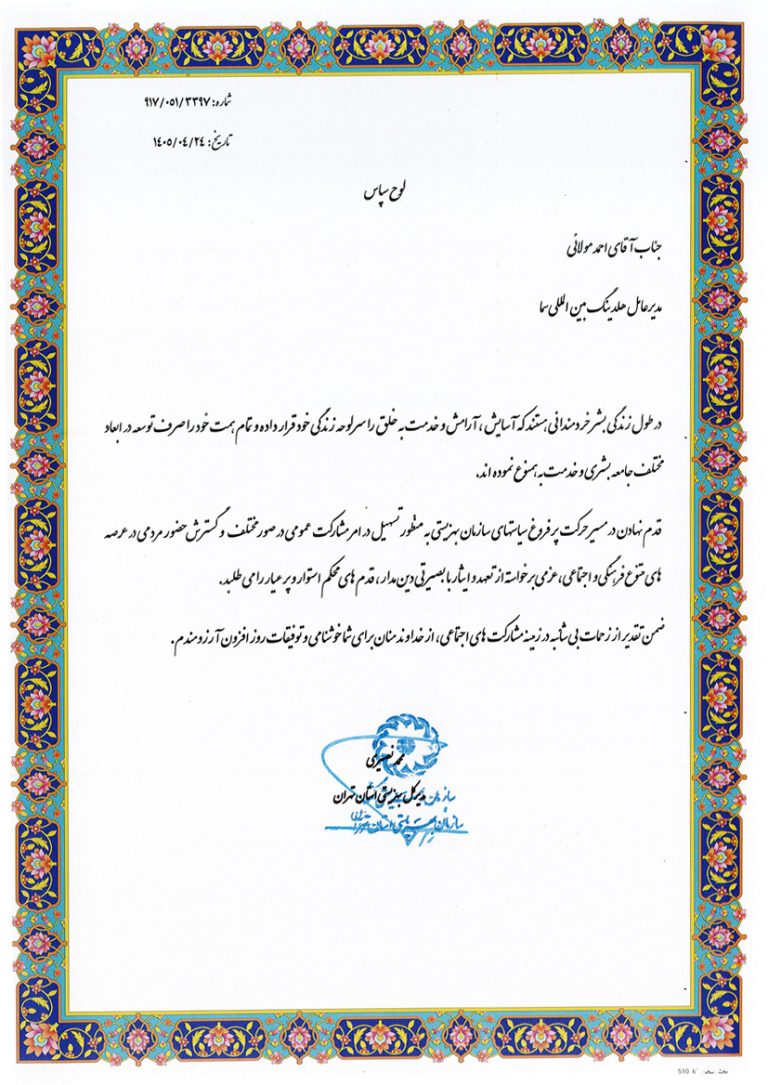 شماره: ۹۱۷/۰۵۱/۳۳۹۷
تاریخ: ۱۴۰۵/۰۴/۲۴
لوح سپاس
جناب آقای احمد مولائی
مدیرعامل هلدینگ بین المللی سما
در طول زندگی بشر خردمندانی هستند که آسایش، آرامش و خدمت به خلق را سرلوحه زندگی خود قرار داده و تمام همت خود را صرف توسعه در ابعاد
مختلف جامعه بشری و خدمت به همنوع نموده اند.
قدم نهادن در مسیر حرکت پر فروغ سیاستهای سازمان بهزیستی به منظور تسهیل در امر مشارکت عمومی در صور مختلف و گسترش حضور مردمی در عرصه
های متنوع فرهنگی و اجتماعی، عزمی برخواسته از تعهد و ایثار با بصیرتی دین مدار، قدم های محکم استوار و پر عیار را می طلبد.
ضمن تقدیر از زحمات بی شائبه در زمینه مشارکت های اجتماعی، از خداوند منان برای شما خوشنامی و توفیقات روز افزون آرزومندم.
محمد نصیری
مدیرکل بهزیستی استان تهران
سازمان بهزیستی استان تهران
510 K